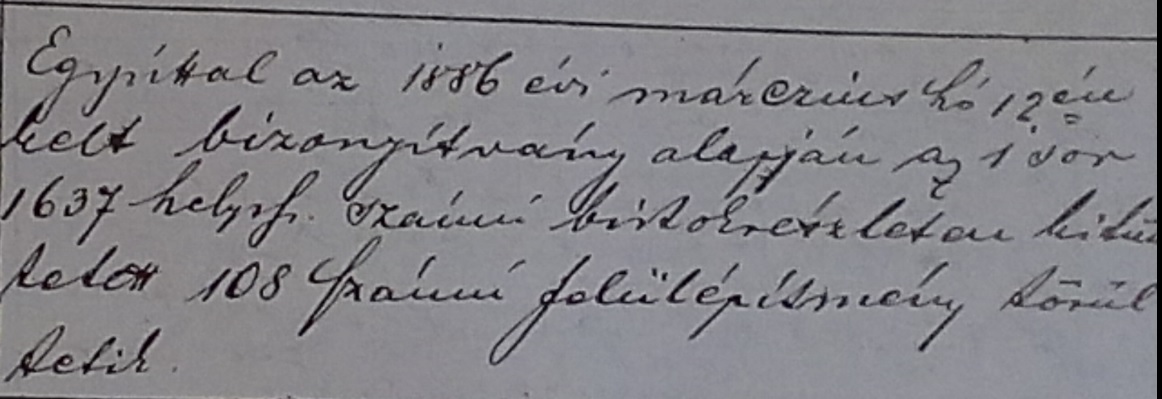 Egyúttal az 1886 évi márczius hó 12én
kelt bizonyítvány alapján az 1 sor
1637 helysz. számú birtokrészleten kitün
tetett 108 számú felülépítmény törül
tetik.